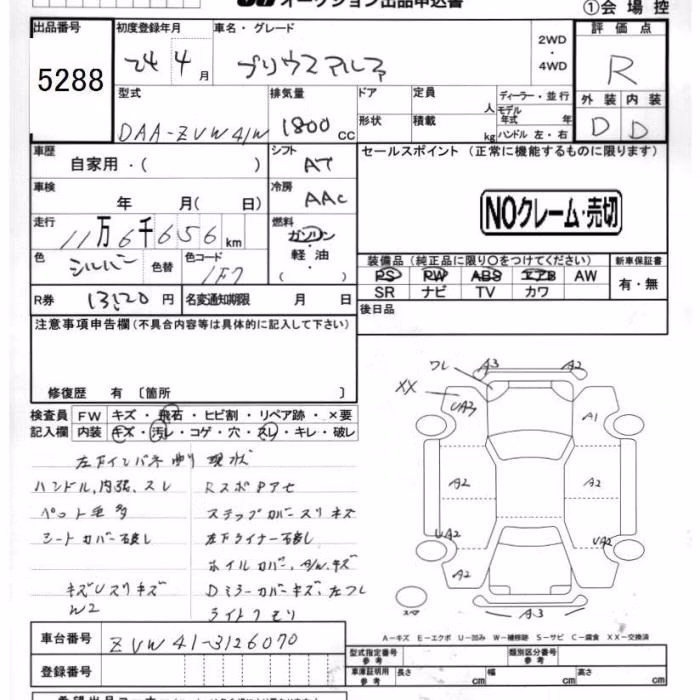 オークション出品申込書
①会場控
出品番号 初度登録年月 車名・グレード 評価点
5288 24 4月 プリウスアルファ 2WD・4WD R
型式 排気量 ドア 定員 人 ディーラー・並行 外装 内装
DAA-ZVW41W 1800cc 形状 積載 kg モデル年式 年 ハンドル 左・右 D D
車歴 自家用・( ) シフト AT セールスポイント(正常に機能するものに限ります)
車検 年 月( 日) 冷房 AAC
NOクレーム・売切
走行 11万6千656km 燃料 ガソリン・軽油・( )
色 シルバー 色替 色コード 1F7
装備品(純正品に限り○をつけてください) 新車保証書
PS PW ABS エアB AW 有・無
SR ナビ TV カワ
R券 13520円 名変通知期限 月 日 後日品
注意事項申告欄(不具合内容等は具体的に記入して下さい)
修復歴 有〔箇所 〕
検査員 FW キズ・飛石・ヒビ割・リペア跡・×要
記入欄 内装 キズ・汚レ・コゲ・穴・スレ・キレ・破レ
現状
ハンドル,内張,スレ
ペット毛多
シートカバー
キズUスリキズ
W2
ステップカバースリキズ
左下ライナー
ホイルカバー,A/Wキズ
Dミラーカバーキズ,左
ライトクモリ
ワレ A3 A2
XX UA3 A1
A2 A2
UA2 UA2
A2
スペア A3
A-キズ E-エクボ U-凹み W-補修跡 S-サビ C-腐食 XX-交換済
車台番号 ZVW41-3126070
型式指定番号 参考 類別区分番号 参考
登録番号
車庫証明用 参考 長さ cm 幅 cm 高さ cm